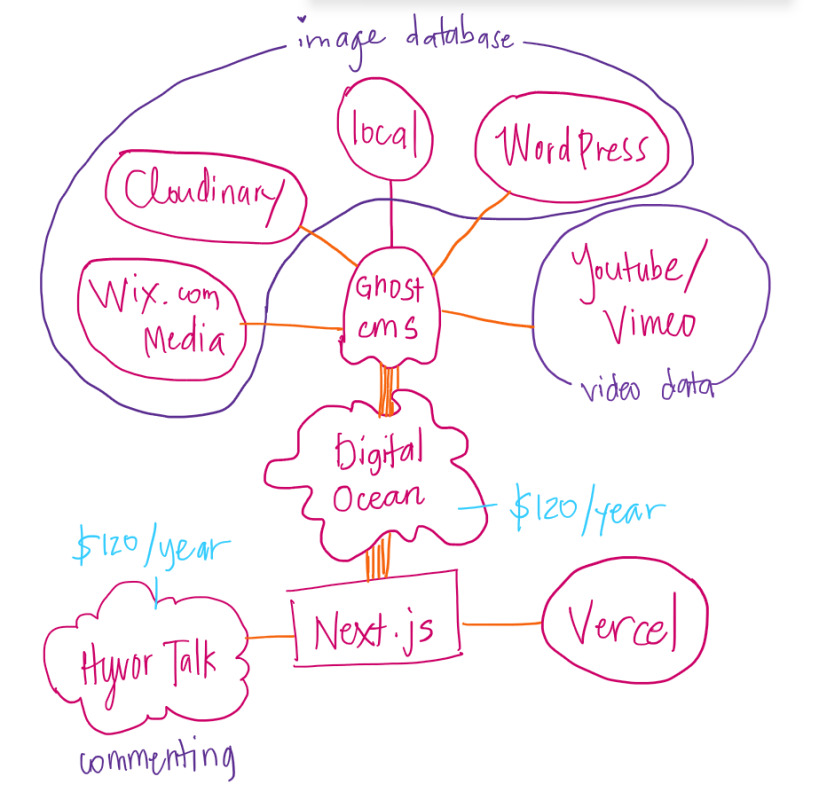 image database
local
WordPress
Cloudinary
Wix.com
Media
Ghost
cms
Youtube/
Vimeo
video data
Digital
Ocean
$120/year
$120/year
Next.js
Vercel
Hyvor Talk
commenting